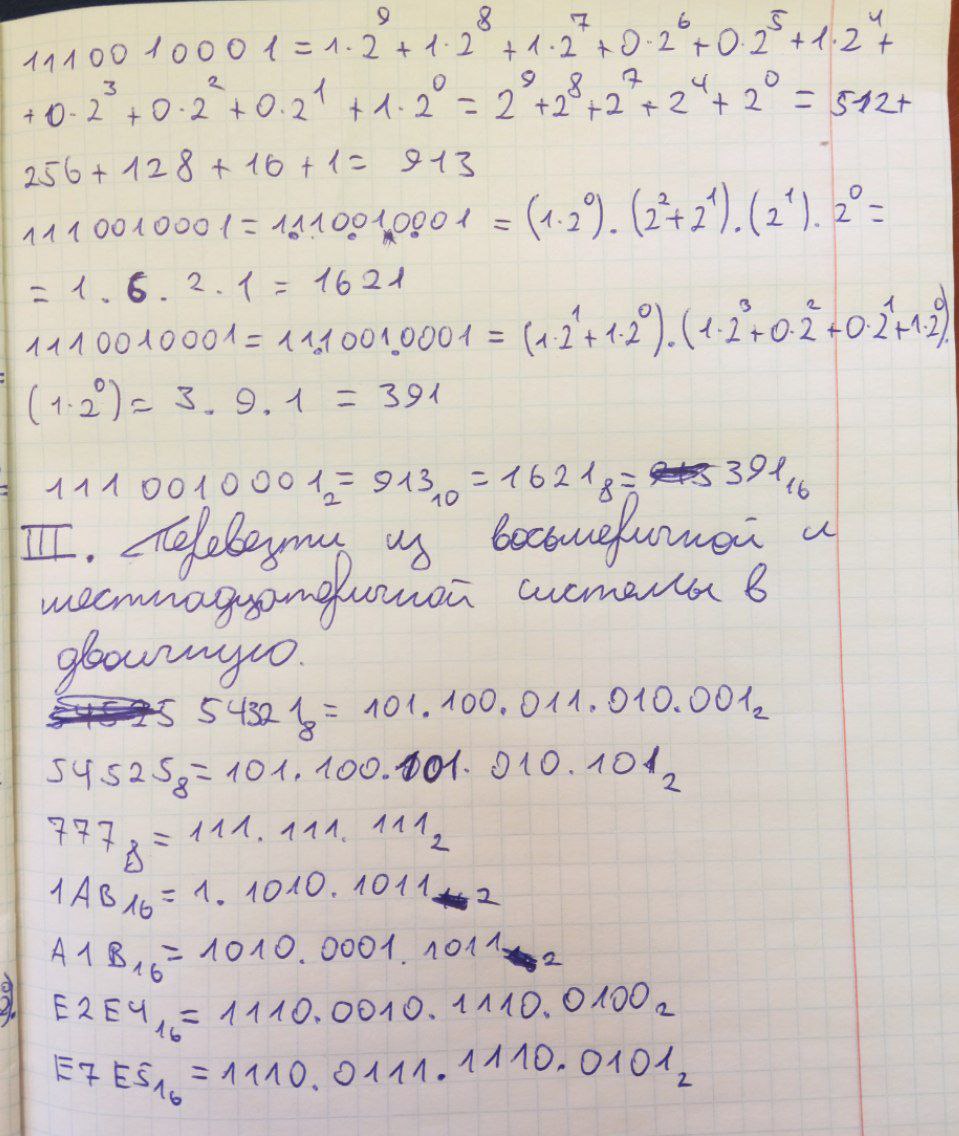 1110010001 = 1·2⁹ + 1·2⁸ + 1·2⁷ + 0·2⁶ + 0·2⁵ + 1·2⁴ +
+ 0·2³ + 0·2² + 0·2¹ + 1·2⁰ = 2⁹ + 2⁸ + 2⁷ + 2⁴ + 2⁰ = 512+
256 + 128 + 16 + 1 = 913
1110010001 = 1.110.010.001 = (1·2⁰).(2²+2¹).(2¹).2⁰ =
= 1.6.2.1 = 1621
1110010001 = 11.1001.0001 = (1·2¹+1·2⁰).(1·2³+0·2²+0·2¹+1·2⁰).
(1·2⁰) = 3.9.1 = 391
1110010001₂ = 913₁₀ = 1621₈ = 391₁₆
III. Перевезти из восьмеричной и
шестнадцатеричной системы в
двоичную.
54321₈ = 101.100.011.010.001₂
54525₈ = 101.100.101.010.101₂
777₈ = 111.111.111₂
1AB₁₆ = 1.1010.1011₂
A1B₁₆ = 1010.0001.1011₂
E2E4₁₆ = 1110.0010.1110.0100₂
E7E5₁₆ = 1110.0111.1110.0101₂